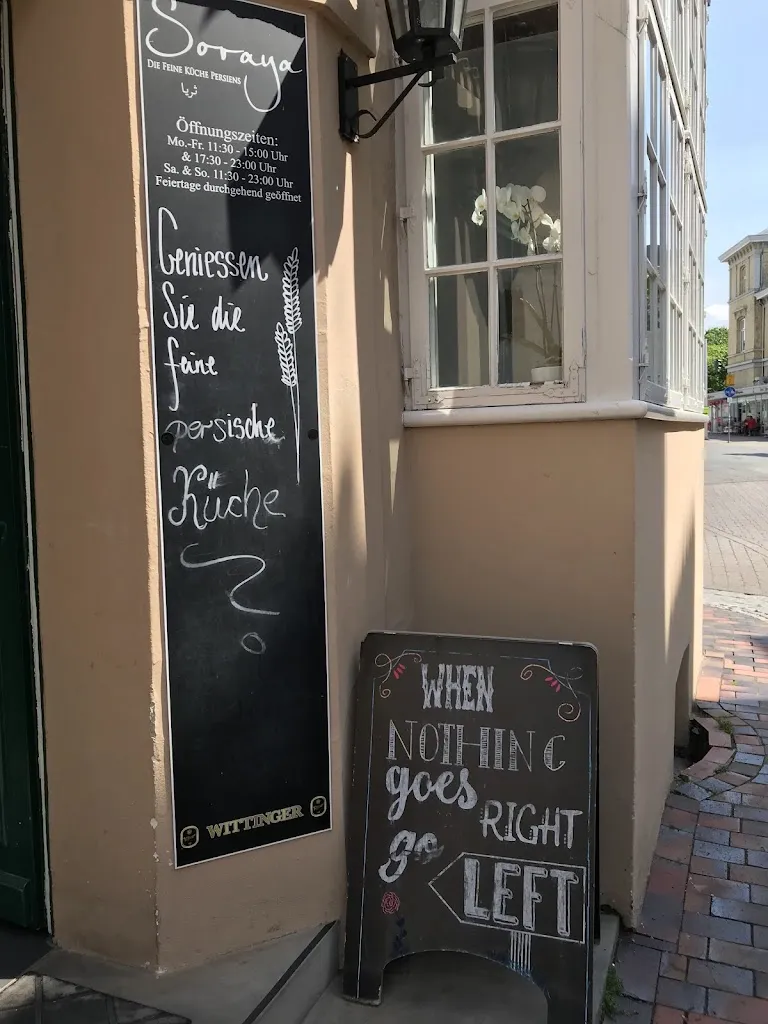 Soraya
DIE FEINE KÜCHE PERSIENS
ثريا
Öffnungszeiten:
Mo.-Fr. 11:30 - 15:00 Uhr
& 17:30 - 23:00 Uhr
Sa. & So. 11:30 - 23:00 Uhr
Feiertage durchgehend geöffnet
Geniessen
Sie die
feine
persische
Küche
WITTINGER
WHEN
NOTHING
goes
RIGHT
go
LEFT